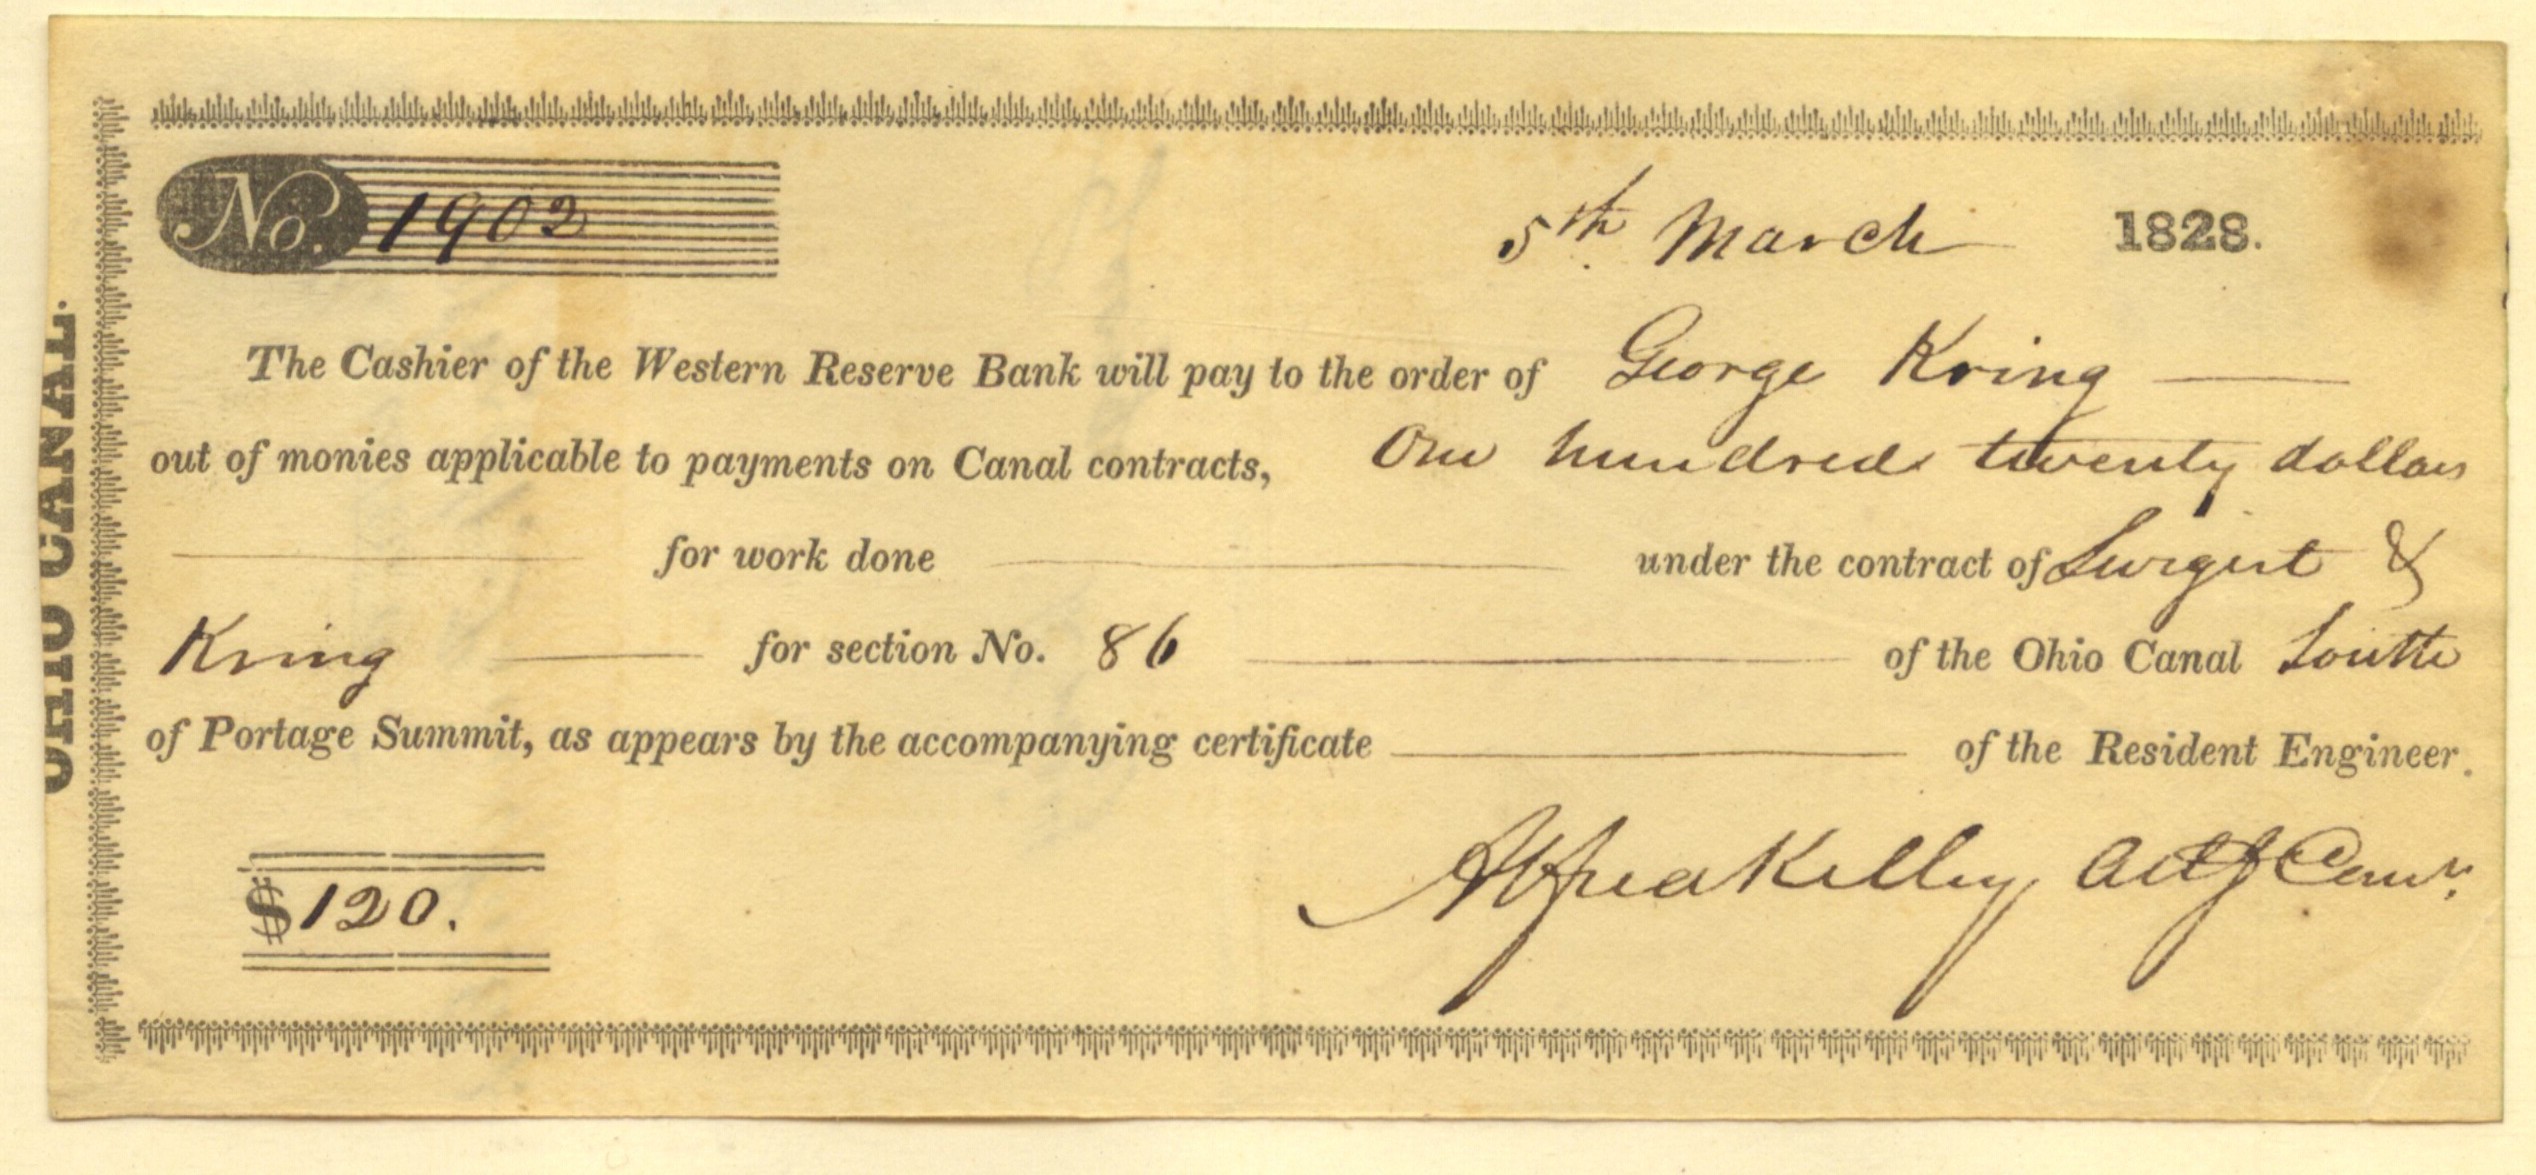 OHIO CANAL.
No. 1902
5th March 1828.
The Cashier of the Western Reserve Bank will pay to the order of George Kring
out of monies applicable to payments on Canal contracts, One hundred twenty dollars
for work done under the contract of &
Kring for section No. 86 of the Ohio Canal South
of Portage Summit, as appears by the accompanying certificate of the Resident Engineer.
$120.
Alfred Kelley Actg Comr.